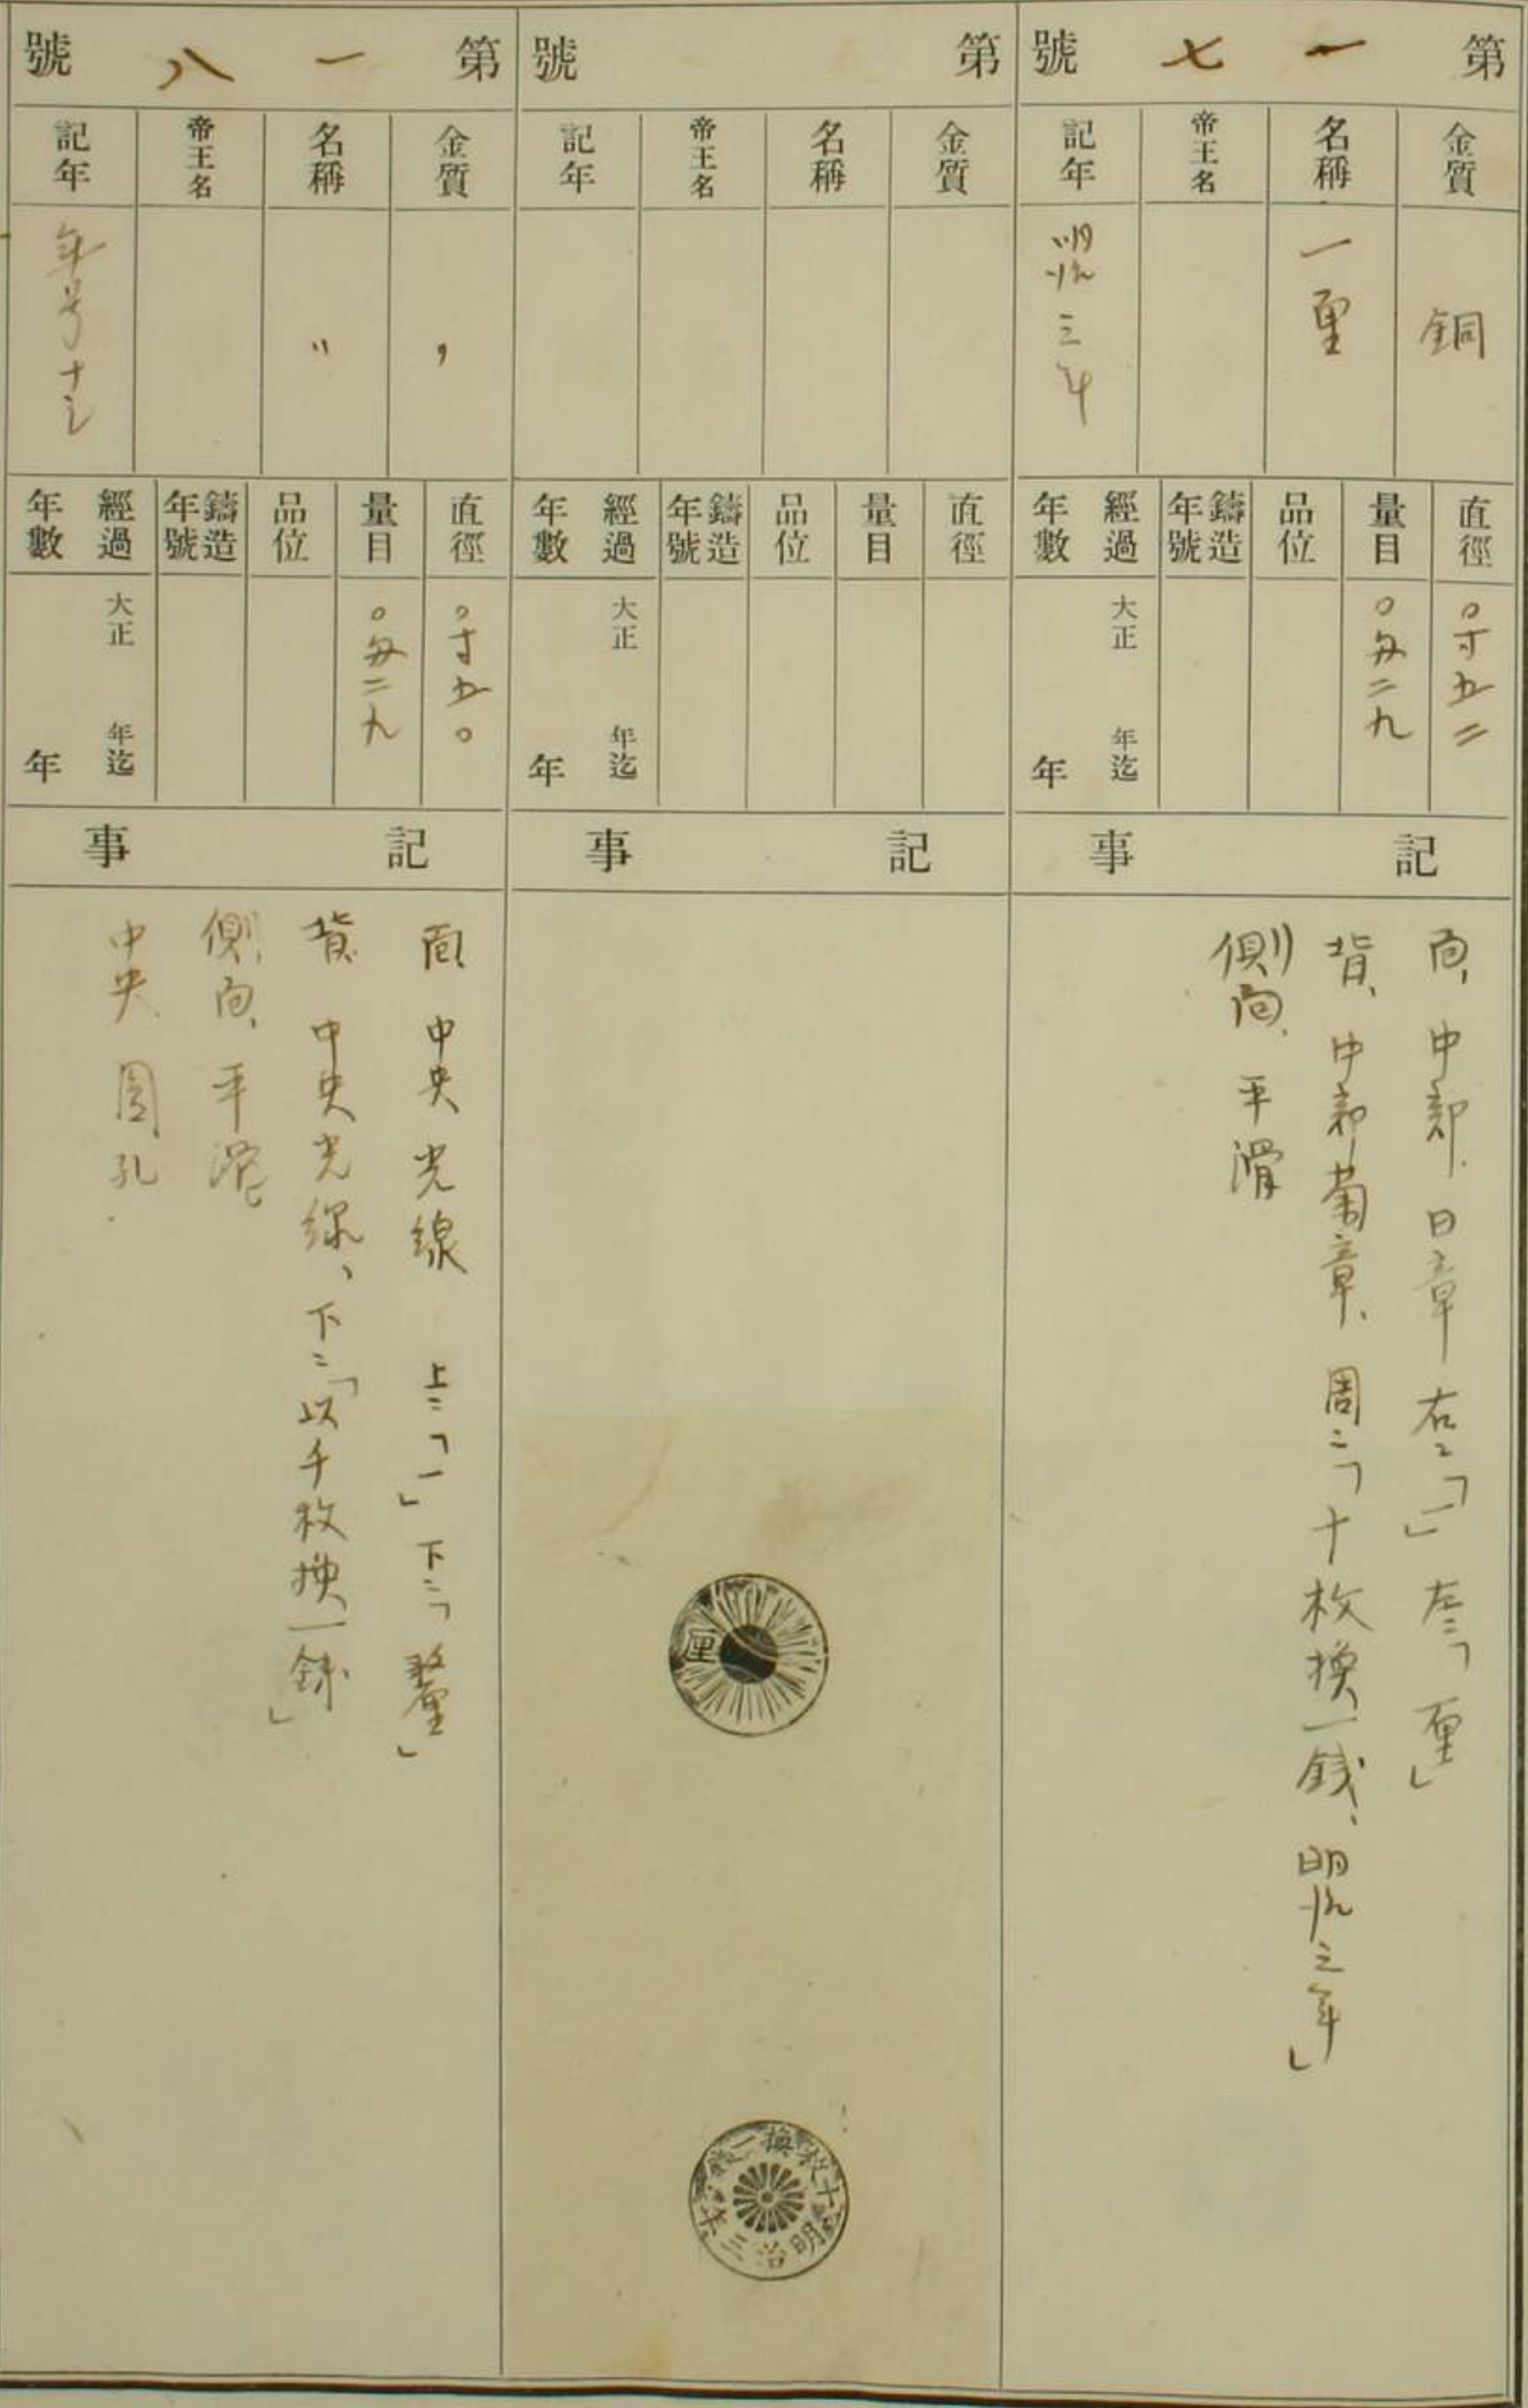 第一七號
金質
銅
名稱
一厘
帝王名
記年
明治三年
直徑
〇寸五二
量目
〇匁二九
品位
鑄造年號
經過年數
大正 年迄
年
記事
面、中部、日章右ニ「一」左ニ「厘」
背、中部菊章、周ニ「十枚換一錢、明治三年」
側面、平滑
第 號
金質
名稱
帝王名
記年
直徑
量目
品位
鑄造年號
經過年數
大正 年迄
年
記事
厘
十枚換一錢
明治三年
第一八號
金質
〃
名稱
〃
帝王名
記年
年号ナシ
直徑
〇寸五〇
量目
〇匁二九
品位
鑄造年號
經過年數
大正 年迄
年
記事
面 中央光線 上ニ「一」下ニ「釐」
背 中央光線、下ニ「以千枚換一錢」
側面、平滑
中央 圓孔